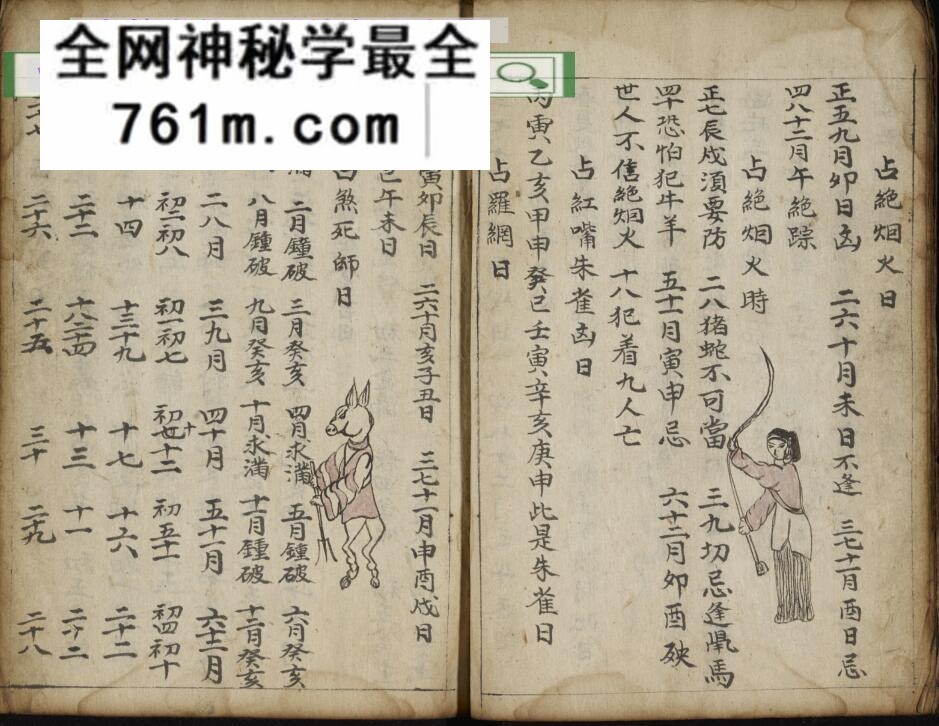 全网神秘学最全
761m.com
占絶烟火日
正五九月夘日凶 二六十月未日不逢 三七十一月酉日忌
四八十二月午絶踪
占絶烟火時
正七辰戌須要防 二八猪蛇不可當 三九切忌逢鼠馬
四十恐怕犯牛羊 五十一月寅申忌 六十二月夘酉殃
世人不信絶烟火 十八犯着九人亡
占紅嘴朱雀凶日
丙寅乙亥甲申癸巳壬寅辛亥庚申此是朱雀日
占羅網日
寅卯辰日 二六十月亥子丑日 三七十一月申酉戌日
巳午未日
占煞死師日
二月鐘破 三月癸亥 四月求滿 五月鐘破 六月癸亥
八月鐘破 九月癸亥 十月求滿 十一月鐘破 十二月癸亥
二八月 三九月 四十月 五十一月 六十二月
初二初八 初一初七 初五十一 初四初十
十四 十三十九 十七 十六 二十二
二十二 十八二十四 十三 十一
二十六 二十五 三十 二十九 二十八